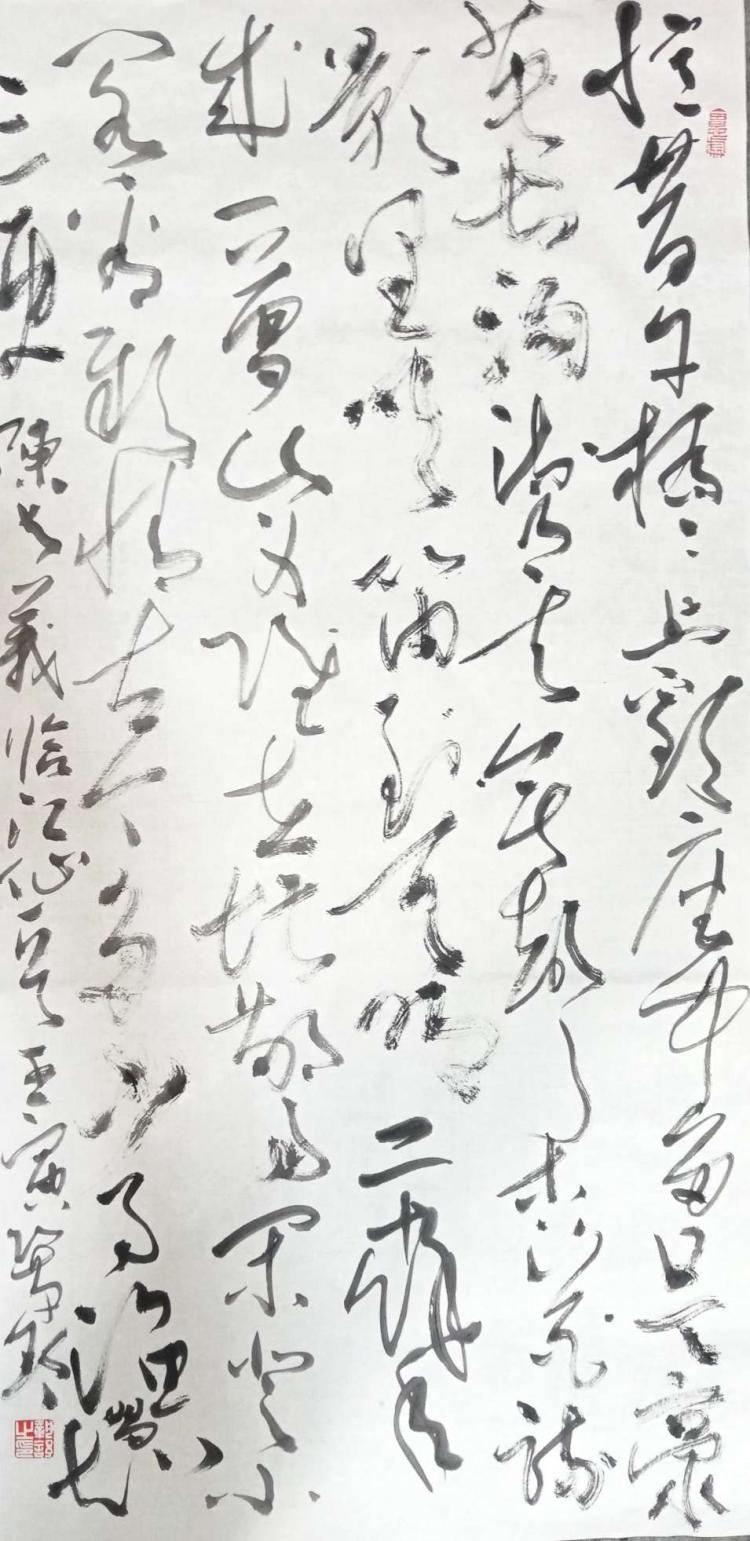 憶昔午橋橋上飲座中多是豪
英長溝流月去無聲杏花疏
影里吹笛到天明二十餘年
成一夢此身雖在堪驚閑登小
閣看新晴古今多少事漁唱起
三更 陳与義臨江仙 壬寅